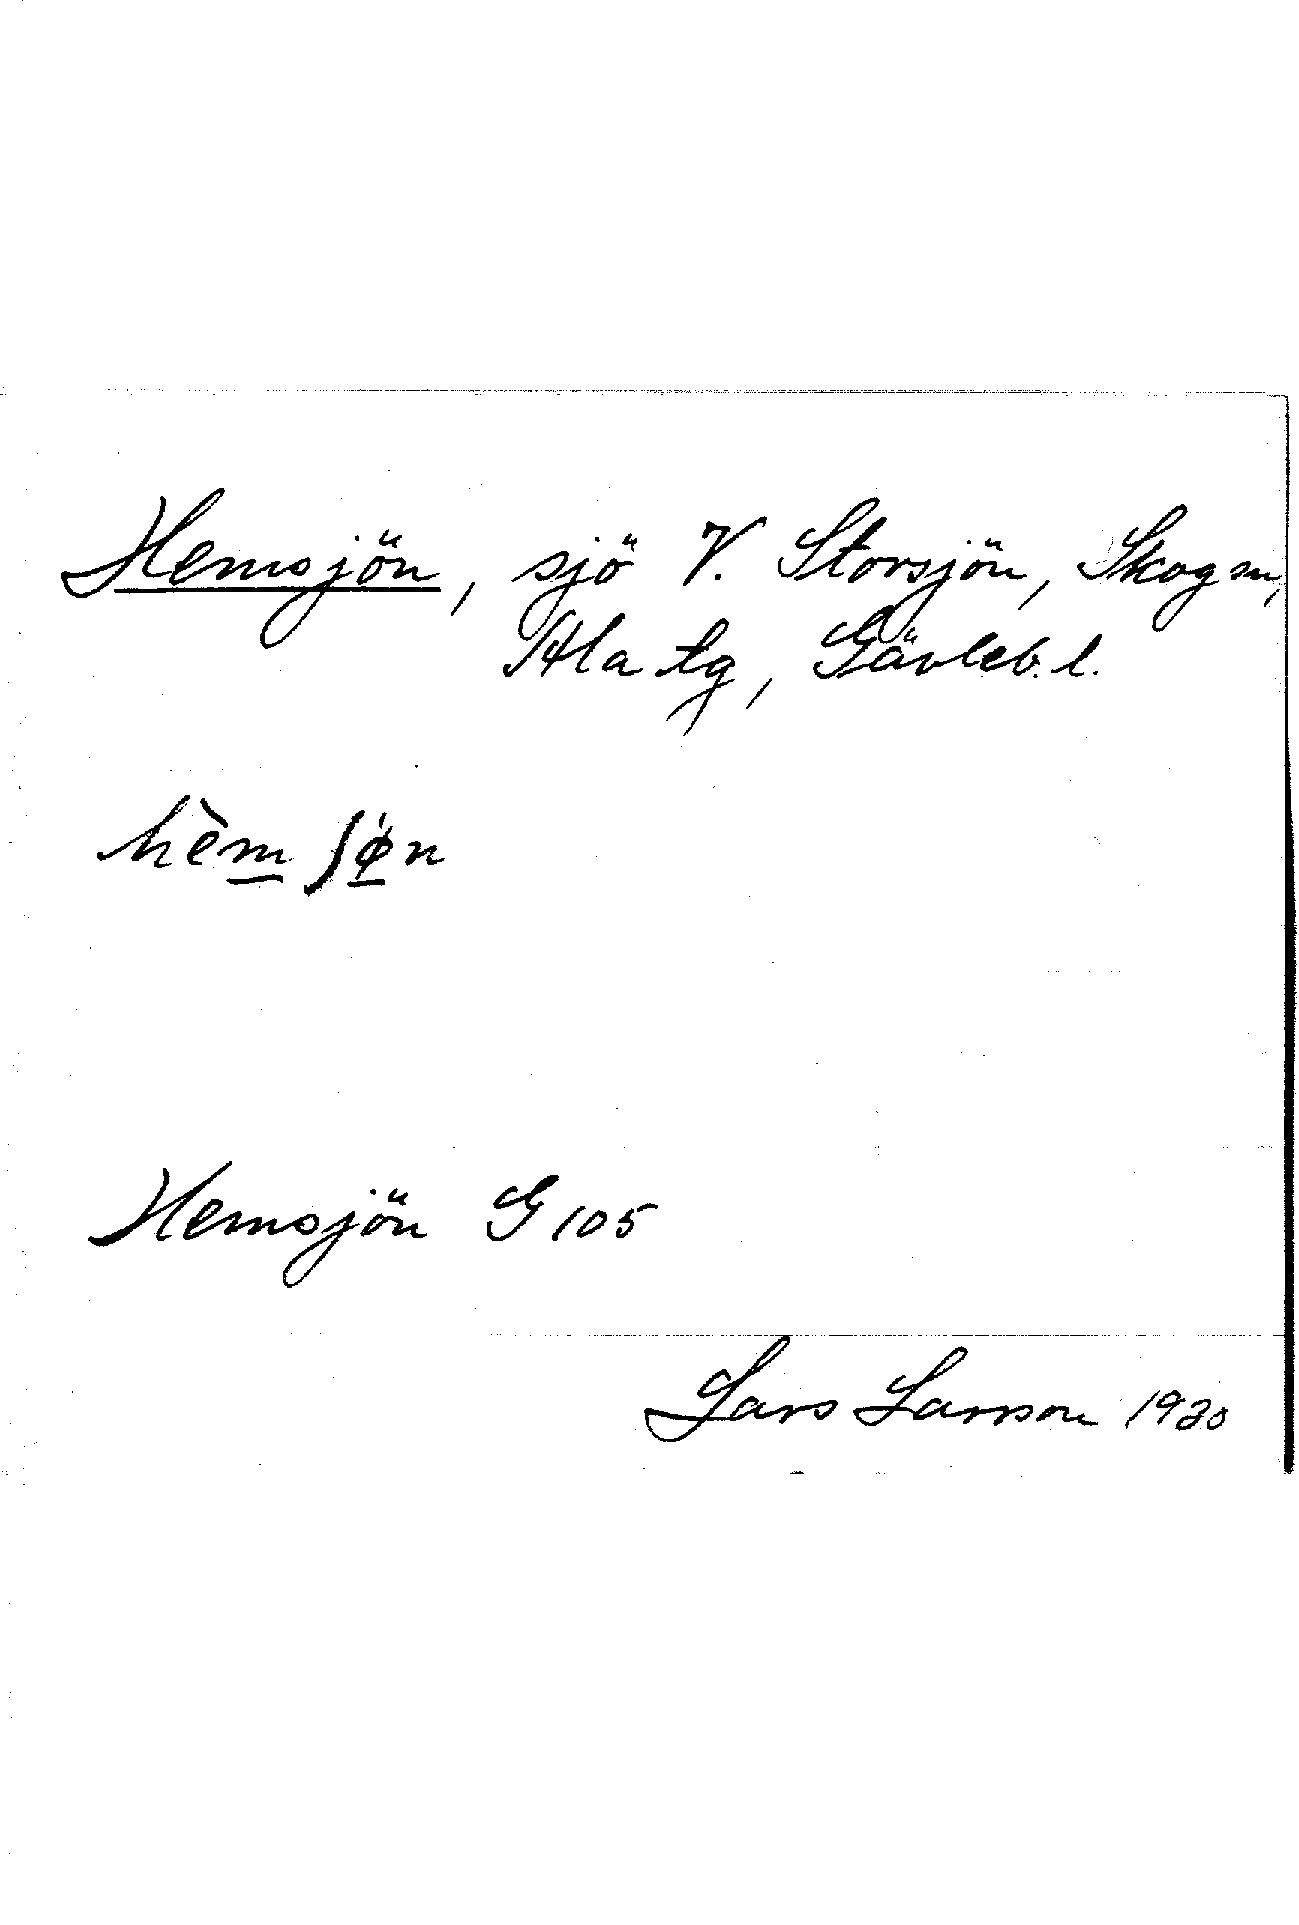 Hemsjön, sjö V. Storsjön, Skog sn,
Ala tg, Gävleb. l.
hèm ʃǿn
Hemsjön G 105
Lars Larsson 1930